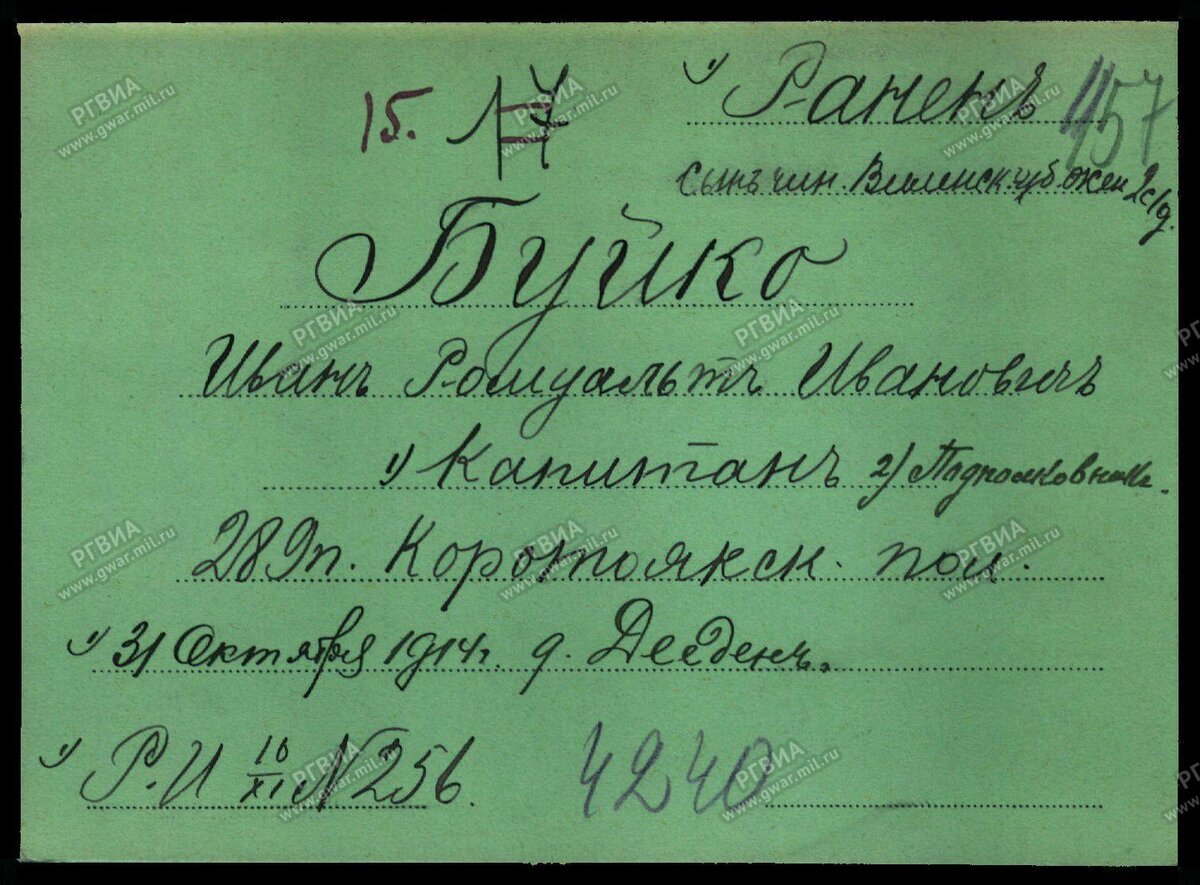 15.
1) Раненъ 457
сынъ чин. Виленск губ жен 2с/д.
Буйко
Иванъ Ромуальтъ Ивановичъ
1) Капитанъ 2) Подполковникъ.
289п. Коротоякск. пол.
1) 31 Октября 1914г. д. Десденъ.
1) Р.И 10/XI №256.
4240
РГВИА
www.gwar.mil.ru